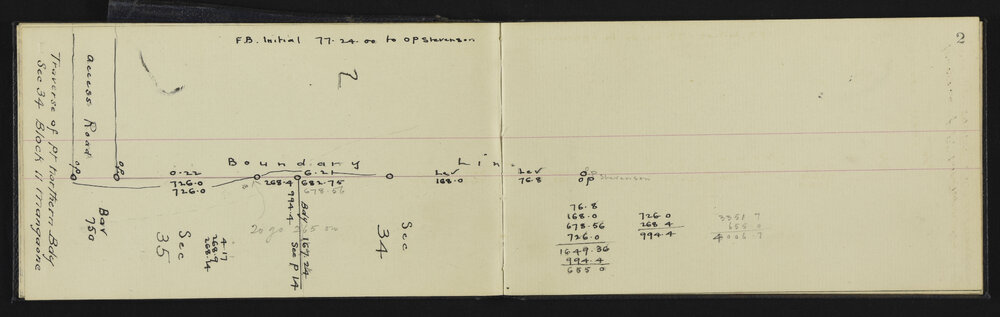 2
F.B. Initial 77.24.00 to OP Stevenson
Traverse of pt Northern Bdy
Sec 34 Block II Mangaone
access Road
OP
OP
Boundary Lin.
0.22
6.21
Lev
Lev
OP Stevenson
726.0
268.4
682.75
168.0
76.8
726.0
678.56
994.4
Bdy 157.24
See P 14
20 go 265 on
Bav
750
Sec
35
4.7
268.9
268.14
Sec
34
76.8
168.0
678.56
726.0
1649.36
994.4
655.0
726.0
268.4
994.4
3351 7
655 0
4006.7